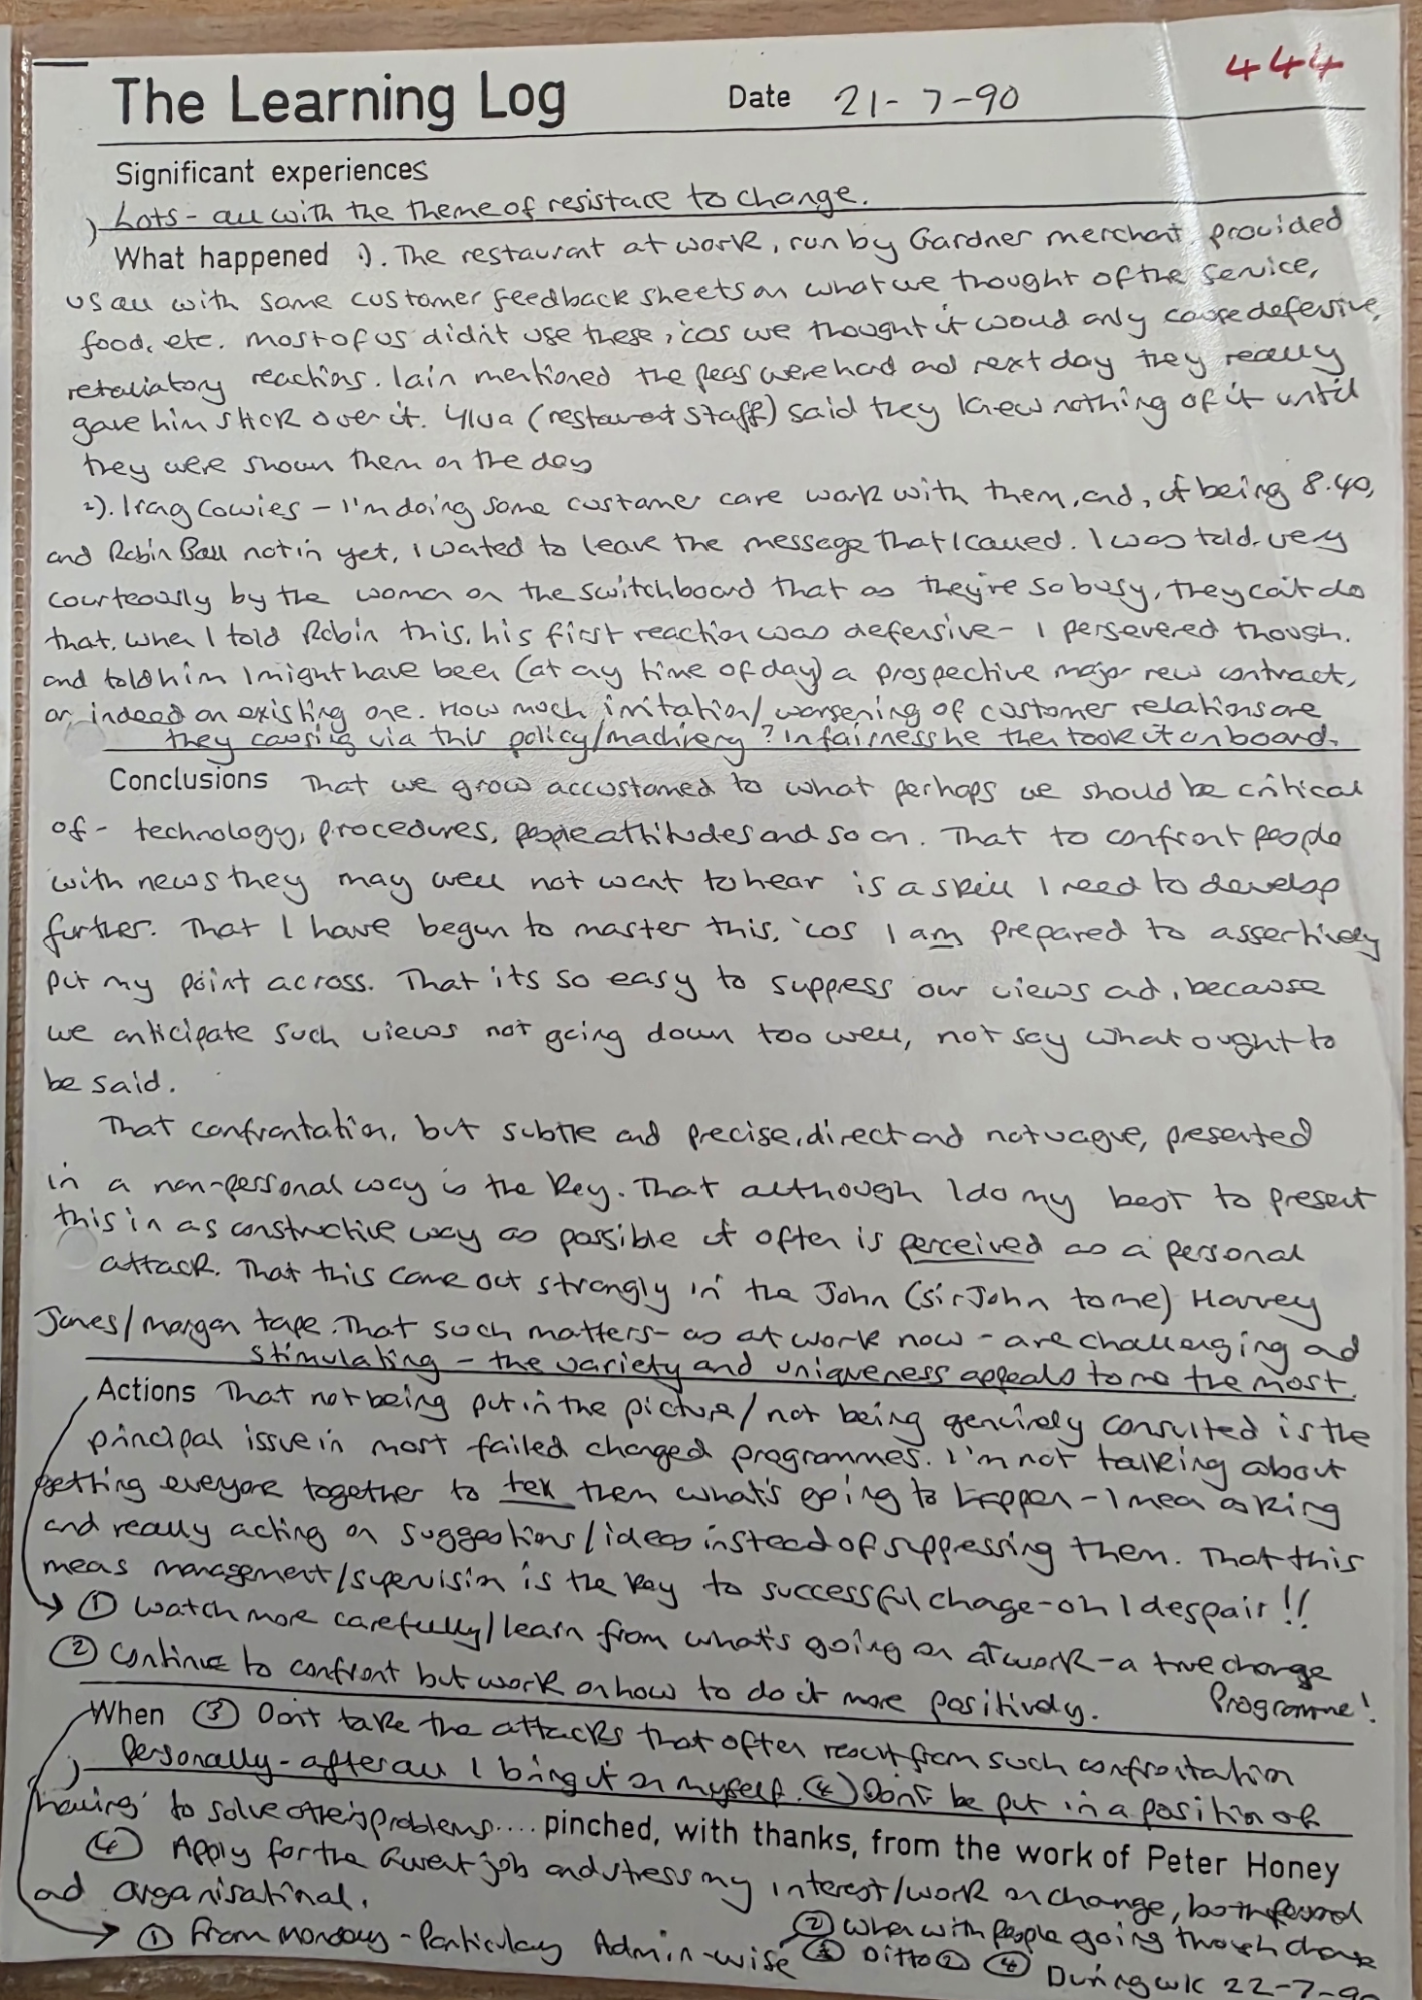 444
The Learning Log Date 21-7-90
Significant experiences
) Lots - all with the theme of resistace to change.
What happened 1). The restaurant at work, run by Gardner merchant, provided
us all with some customer feedback sheets on what we thought of the service,
food, etc. most of us didn't use these, 'cos we thought it would only cause defensive,
retaliatory reactions. Iain mentioned the peas were hard and next day they really
gave him stick over it. (restaurant staff) said they knew nothing of it until
they were shown them on the day
2). Cowies - I'm doing some customer care work with them, and, it being 8.40,
and Robin Ball not in yet, I wated to leave the message that I called. I was told, very
courteously by the woman on the switchboard that as they're so busy, they can't do
that. when I told Robin this, his first reaction was defensive - I persevered though.
and told him I might have been (at any time of day) a prospective major new contract,
or, indeed an existing one. How much irritation/worsening of customer relations are
they causing via this policy/machinery? In fairness he then took it on board.
Conclusions That we grow accustomed to what perhaps we should be critical
of - technology, procedures, people attitudes and so on. That to confront people
with news they may well not want to hear is a skill I need to develop
further. That I have begun to master this, 'cos I am prepared to assertively
put my point across. That its so easy to suppress our views ad, because
we anticipate such views not going down too well, not say what ought to
be said.
That confrontation, but subtle and precise, direct and not vague, presented
in a non-personal way is the key. That although I do my best to present
this in as constructive way as possible it often is perceived as a personal
attack. That this came out strongly in the John (sir John to me) Harvey
Jones/morgan tape. That such matters - as at work now - are challenging ad
stimulating - the variety and uniqueness appeals to me the most.
Actions That not being put in the picture/not being genuinely consulted is the
principal issue in most failed changed programmes. I'm not talking about
getting everyone together to tell them what's going to happen - I mean asking
and really acting on suggestions/ideas instead of suppressing them. That this
means management/supervision is the key to successful change - oh I despair!!
① Watch more carefully/learn from what's going on at work - a true change
Programme!
② Continue to confront but work on how to do it more positively.
When ③ Don't take the attacks that often result from such confrontation
) Personally - after all I bring it on myself. ④ Don't be put in a position of
'having' to solve other's problems.... pinched, with thanks, from the work of Peter Honey
④ Apply for the Gwent job and stress my interest/work on change, both personal
ad organisational.
① From Monday - Particulay Admin-wise ② When with people going through change
③ Ditto ② ④ During wk 22-7-90